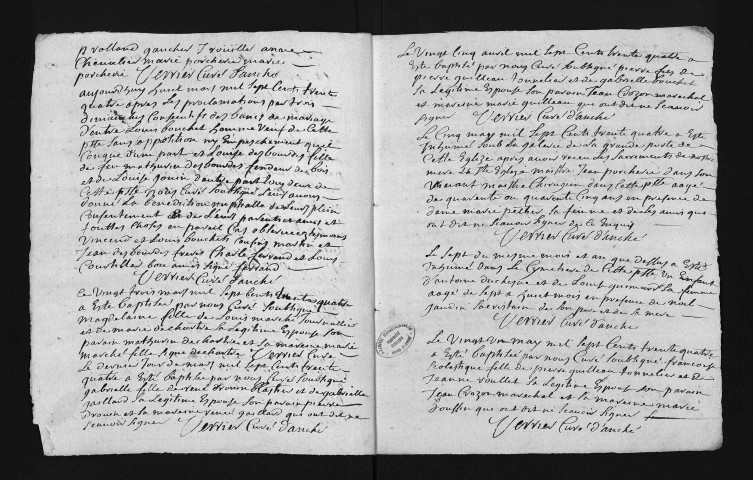 p rolland gaucher Trouillé anne
Chevallier marie porcherie marie
porcherie Verrier Curé d'anché
aujourdhuy huict mars mil sept Cents trent
quatre apres Les proclamations par trois
dimanches Consecutifs des bancs de mariage
d'entre Louis bouchet homme veuf de Cette
psse sans apposition ny Empeschement
d'une part et Louise des bourdes fille
de feu mathurin des bourdes fendeur de bois
et de Louise d'autre part tous deux de
Cette psse nous Curé soubsigné Leur avons
donné La benediction nuptialle de Leurs plein
Consentement de Leurs parents et amis et
touttes choses en pareil Cas observeez tesmoins
Vincend et Louis bouchets
Jean des bourdes freres Charle ferrand et Louis
Courtiller bons amis signé ferrand
Verrier Curé d'anché
Le Vingt trois mars mil sept Cents trente quatre
a Esté baptisée par nous Curé soubsigné
magdelaine fille de Louis marché
et de marie dechartre sa Legitime Epouse son
parain mathurin dechartre et sa mareine marie
marché fille signé dechartre Verrier Curé
Le dernier Jour de mars mil sept Cents trente
quatre a Esté baptisée par nous Curé soubsigné
gabrielle fille de rené drouin et de gabrielle
gaillard sa Legitime Epouse son parain pierre
drouin et sa mareine renée gaillard qui ont dit ne
scavoir signer Verrier Curé d'anché
Le vingt Cinq avril mil sept Cents trente quatre a
Este baptisé par nous Curé soubsigné pierre fils de
pierre quilleau tonnelier et de gabrielle
sa Legitime Epouse son parain Jean Crozon mareschal
et mareine marie quilleau qui ont dit ne scavoir
signer Verrier Curé d'anché
Le Cinq may mil sept Cents trente quatre a Esté
Inhumé sous La galerie de La grande porte de
Cette Eglize apres avoir receu Les sacrements de nostre
mere Ste Eglize maistre Jean porcherie dans son
vivant maistre Chirurgien dans Cette psse aagé
de quarante ou quarante Cinq ans en presence de
dame marie sa femme et de ses amis qui
ont dit ne scavoir signer de ce Enquis
Verrier Curé d'anché
Le sept du mesme mois et an que dessus a Esté
Inhumé dans Le Cymetiere de Cette psse un Enfant
d'antoine duchesne et de Louise sa femme
aagé de sept a huict mois en presence de
Jaudin sacristain de son pere et de sa mere
Verrier Curé d'anché
Le Vingt Un may mil sept Cents trente quatre
a Esté baptisée par nous Curé soubsigné francoise
scolastique fille de pierre quilleau tonnelier et de
Jeanne roullet sa Legitime Epouse son parain
Jean Crozon mareschal et sa mareine marie
qui ont dit ne scavoir signer
Verrier Curé d'anché